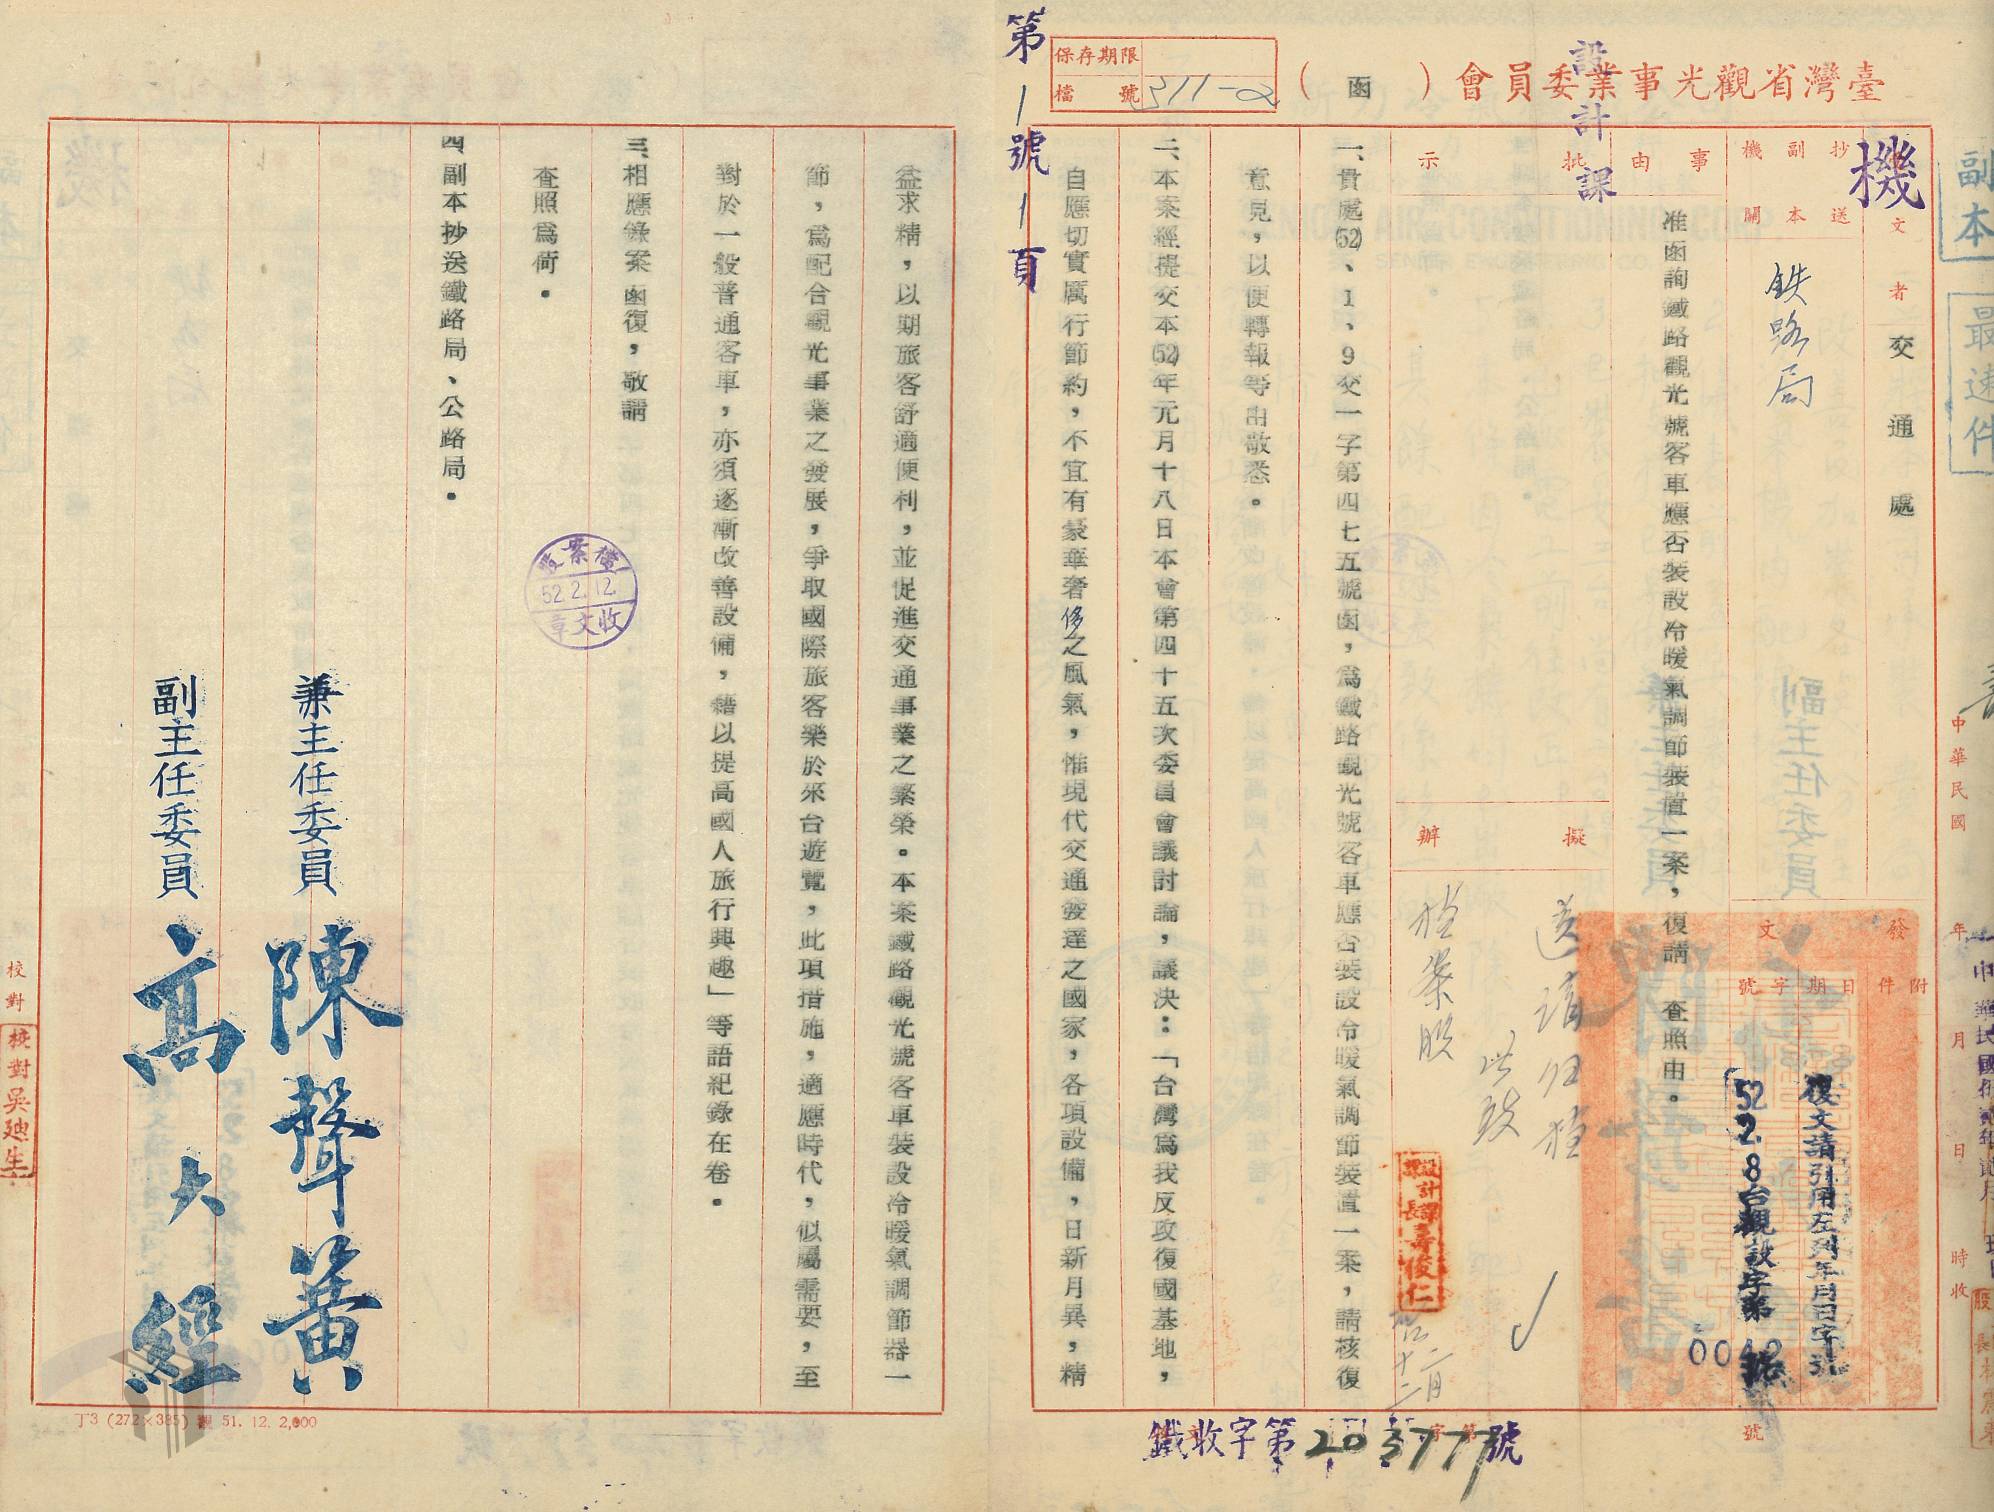 副本
最速件
臺灣省觀光事業委員會（函）
保存期限
檔號 311-2
第1號1頁
設計課
機
文者 交通處
抄送副本機關
鉄路局
事由
准函詢鐵路觀光號客車應否裝設冷暖氣調節裝置一案，復請 查照由。
批示
擬辦
送請歸檔
此致
檔案股
設計課課長 壽俊仁
發文
附件
日期
字號
復文請引用左列年月日字號
52.2.8台觀設字第
號
中華民國 年 月 日 時收
一、貴處(52)、1、9交一字第四七五號函，為鐵路觀光號客車應否裝設冷暖氣調節裝置一案，請核復
意見，以便轉報等由敬悉。
二、本案經提交本(52)年元月十八日本會第四十五次委員會議討論，議決：「台灣為我反攻復國基地，
自應切實厲行節約，不宜有豪華奢侈之風氣，惟現代交通發達之國家，各項設備，日新月異，精
益求精，以期旅客舒適便利，並促進交通事業之繁榮。本案鐵路觀光號客車裝設冷暖氣調節器一
節，為配合觀光事業之發展，爭取國際旅客樂於來台遊覽，此項措施，適應時代，似屬需要，至
對於一般普通客車，亦須逐漸改善設備，藉以提高國人旅行興趣」等語紀錄在卷。
三、相應錄案函復，敬請
查照為荷。
四副本抄送鐵路局、公路局。
檔案股
52.2.12.
收文章
兼主任委員 陳聲簧
副主任委員 高大經
校對
校對吳廸生
丁3 (272×385) 觀 51. 12. 2,000
鐵收字第 號